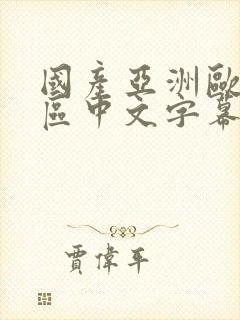 國產亞洲歐
區中文字幕
賈偉平